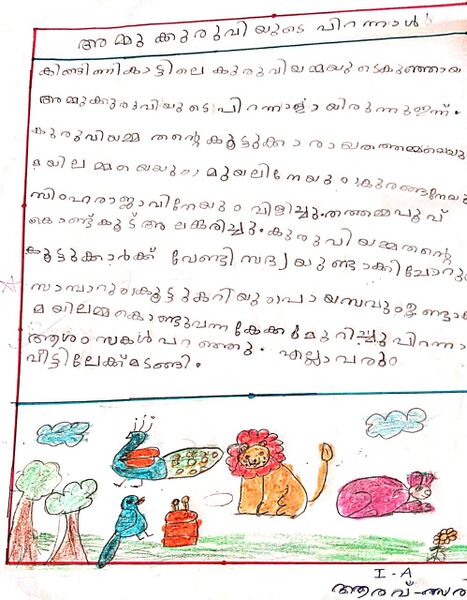 അമ്മുക്കുരുവിയുടെ പിറന്നാൾ
കിങ്ങിണികാട്ടിലെ കുരുവിയമ്മയുടെകുഞ്ഞായ
അമ്മുക്കുരുവിയുടെ പിറന്നാളായിരുന്നു ഇന്ന്.
കുരുവിയമ്മ തന്റെ കൂട്ടുക്കാരായതത്തമ്മയെയു
മയിലമ്മയെയും മുയലിനേയും കുരങ്ങനേയു
സിംഹരാജാവിനേയും വിളിച്ചു. തത്തമ്മ പൂവ്
കൊണ്ട് കൂട് അലങ്കരിച്ചു. കുരുവിയമ്മതന്റെ
കൂട്ടുക്കാർക്ക് വേണ്ടി സദ്യയുണ്ടാക്കി ചോറും
സാമ്പാറും കൂട്ടുകറിയും പായസവും ഉണ്ടാ
മയിലമ്മകൊണ്ടുവന്ന കേക്ക് മുറിച്ചു പിറന്നാ
ആശംസകൾ പറഞ്ഞു. എല്ലാവരും
വീട്ടിലേക്ക് മടങ്ങി.
I-A
ആരവ്